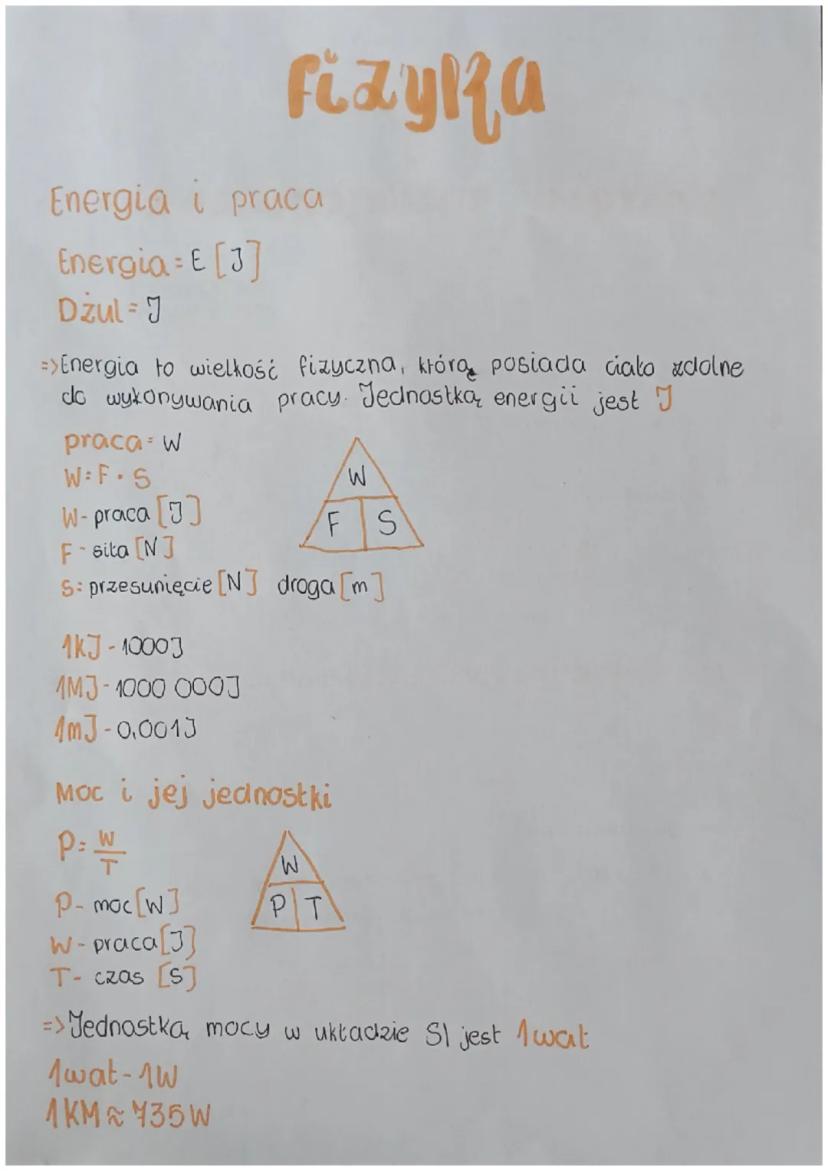 fizyka
Energia i praca
Energia = E [J]
Dżul = J
=> Energia to wielkość fizyczna, którą posiada ciało zdolne
do wykonywania pracy. Jednostką energii jest J
praca = W
W = F · S
W - praca [J]
F - siła [N]
S = przesunięcie [N] droga [m]
W
F S
1kJ - 1000J
1MJ - 1000 000J
1mJ - 0,001J
Moc i jej jednostki
P = W/T
P - moc [W]
W - praca [J]
T - czas [S]
W
P T
=> Jednostką mocy w układzie SI jest 1wat
1wat - 1W
1KM ≈ 735W